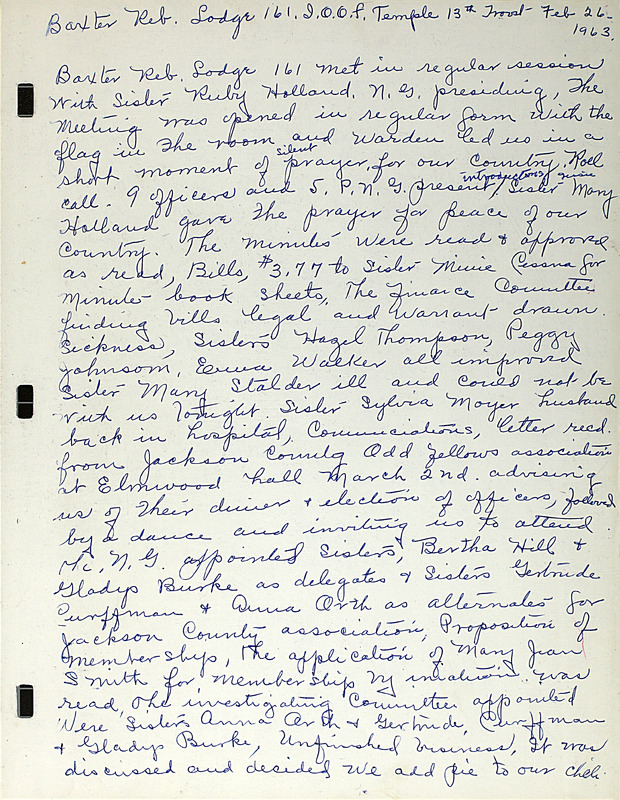 Baxter Reb. Lodge 161. I.O.O.F. Temple 13th Troost Feb 26-
1963.
Baxter Reb. Lodge 161 met in regular session
With Sister Ruby Holland. N.G. presiding, The
Meeting was opened in regular form with the
flag in The room and Warden led us in a
short moment of silent prayer, for our Country, Roll
call. 9 officers and 5. P.N.G. present, introductions none Sister Mary
Holland gave The prayer for peace of our
Country. The minutes were read & approved
as read, Bills, $3.77 to Sister Cessna for
Minute book sheets, The Finance Committee
finding bills legal and Warrant drawn.
Sickness, Sisters Hazel Thompson, Peggy
Johnsom, Emma Walker all improved
Sister Mary Stalder ill and could not be
with us tonight. Sister Sylvia Moyer husband
back in hospital, Communciations, letter read.
from Jackson County Odd Fellows association
at Elmwood hall March 2nd. advising
us of Their dinner & election of officers, followed
by a dance and inviting us to attend.
N.G. appointed Sisters, Bertha Hill &
Gladys Burke as delegates & Sisters Gertrude
Curffman & Anna Orth as alternates for
Jackson County association, Proposition of
Membership, The application of Mary Jean
Smith for membership by was
read, The investigating Committee appointed
Were Sisters Anna Orth & Gertrude, Curffman
& Gladys Burke, Unfinished business, It was
discussed and decided We add pie to our chili